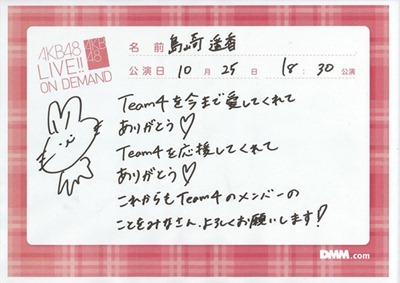 AKB48
LIVE!!
ON DEMAND
AKB
48
名前 島崎遥香
公演日 10月25日 18:30公演
Team4を今まで愛してくれて
ありがとう♡
Team4を応援してくれて
ありがとう♡
これからもTeam4のメンバーの
ことをみなさん、よろしくお願いします!
DMM.com